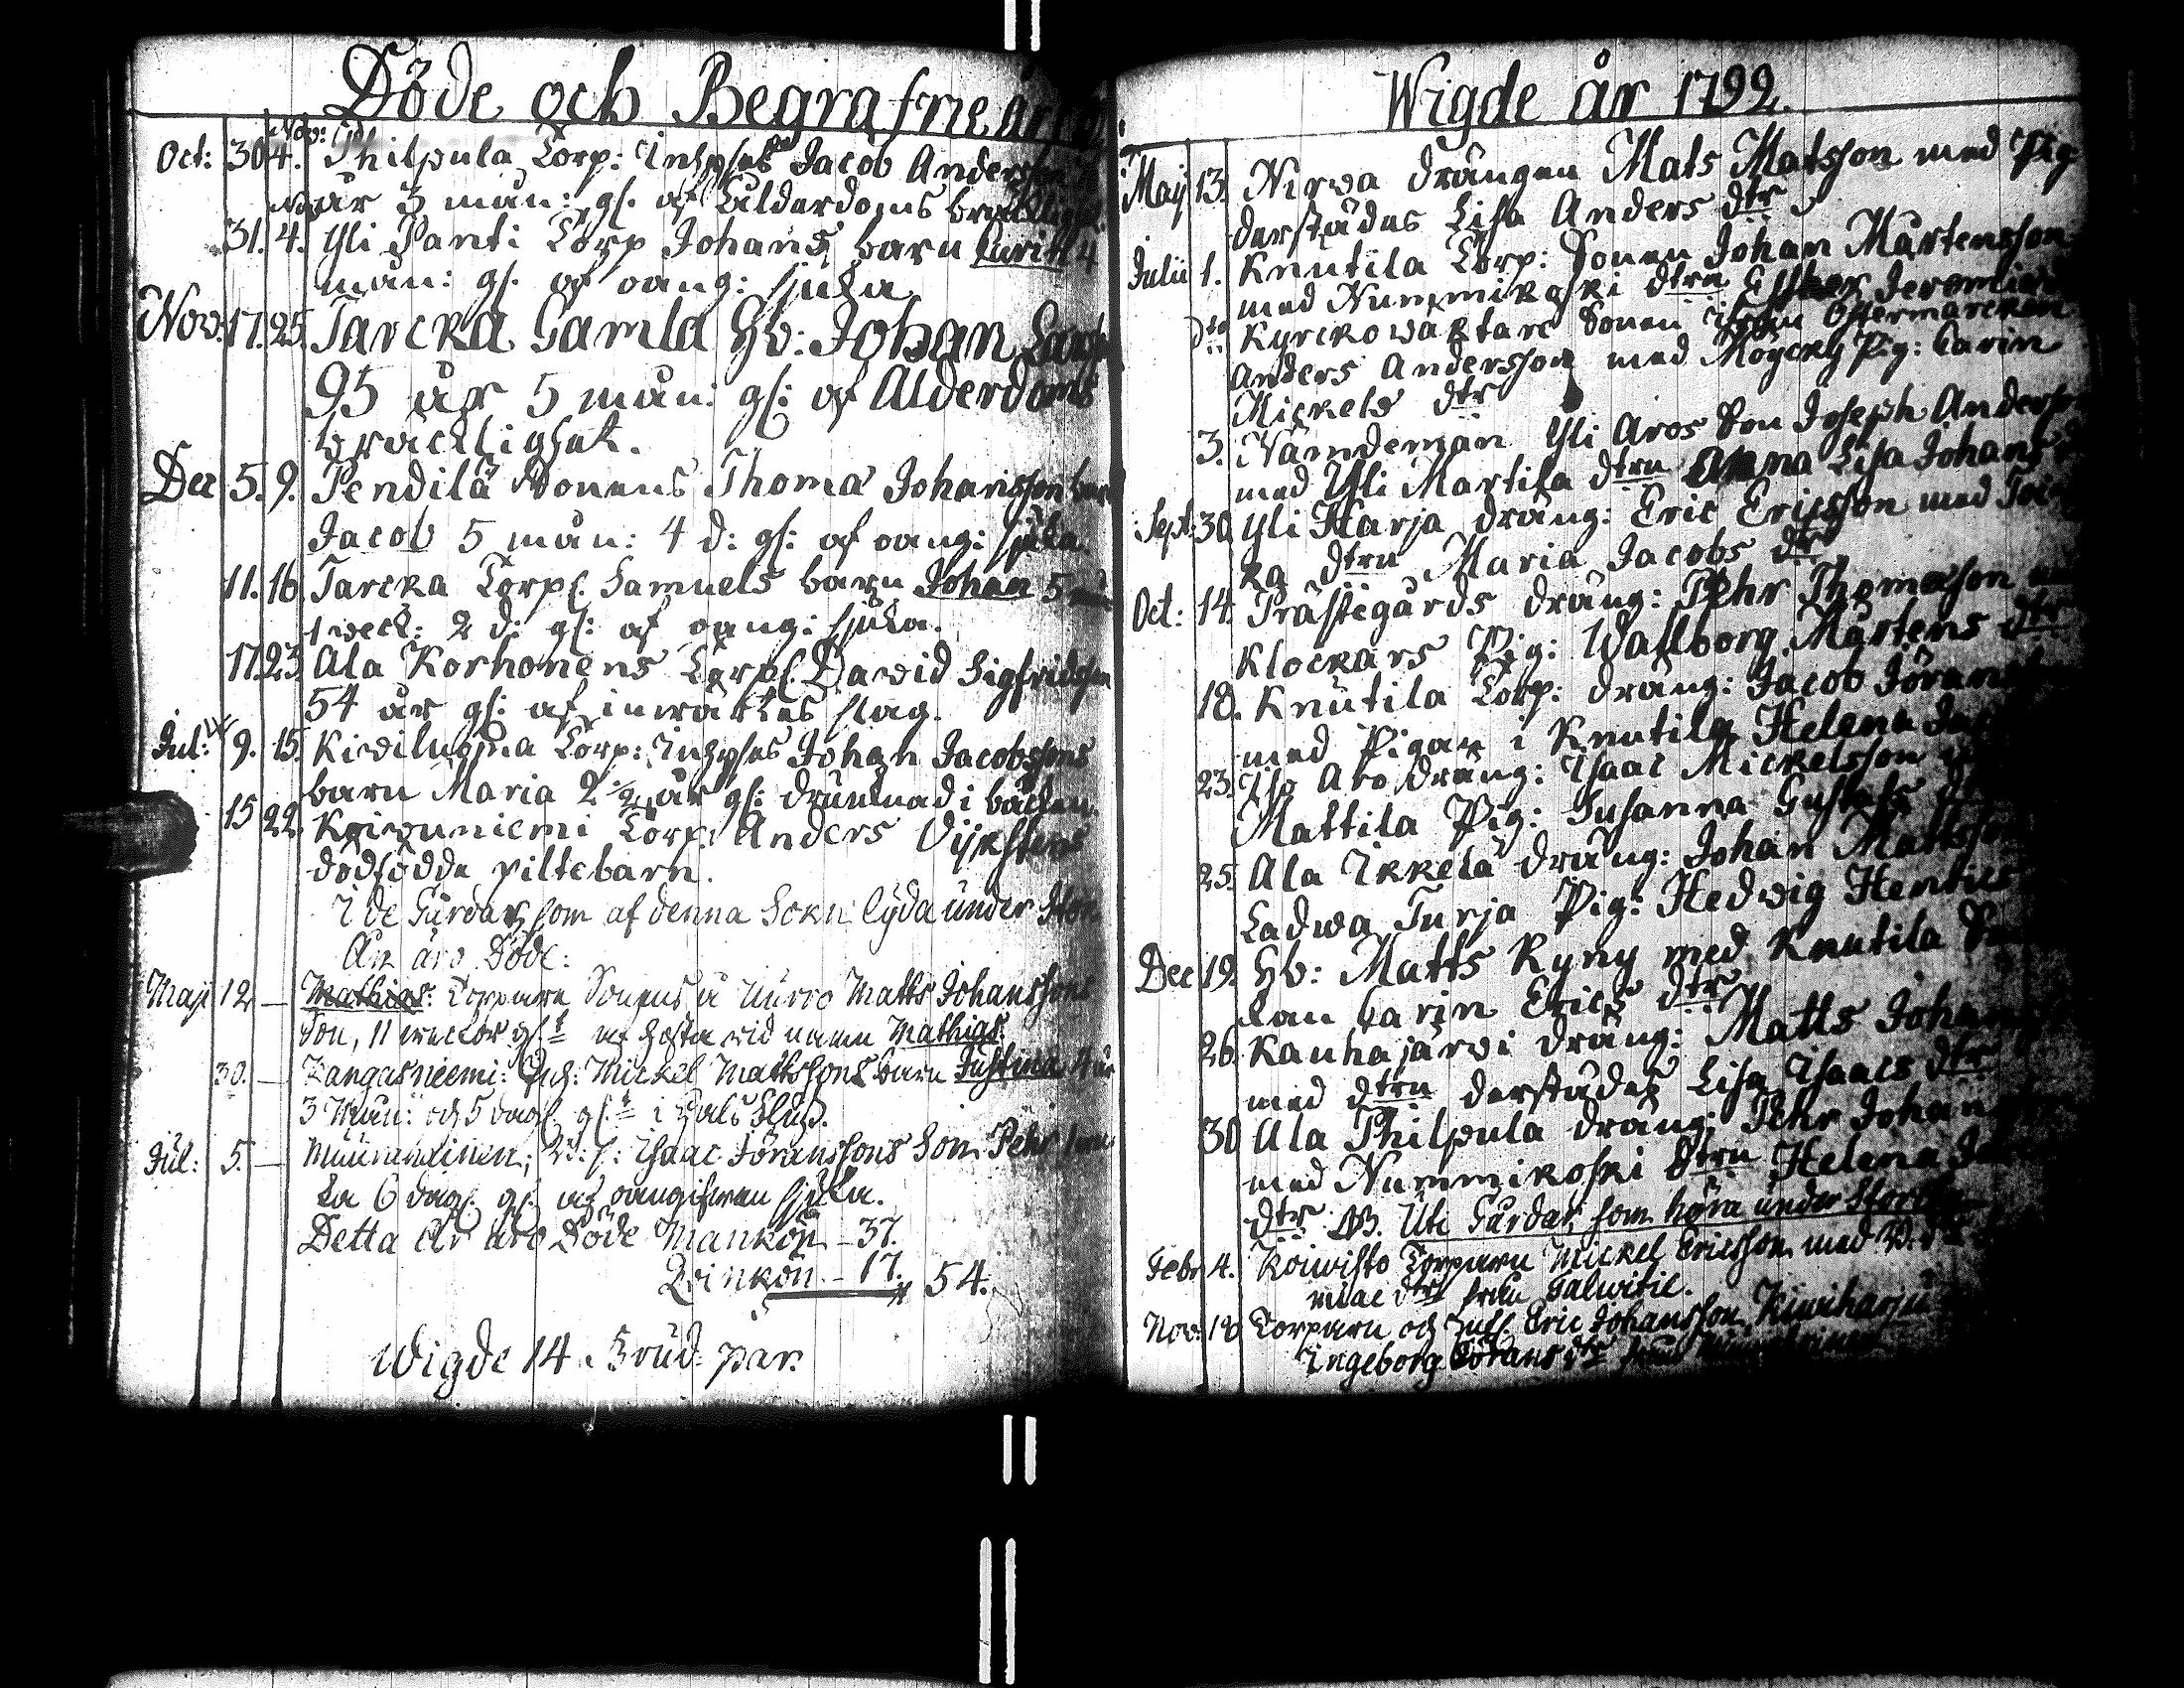 Döde och Begrafne år
Oct: 30 Nov: 4. Philpula Torp: Inhyses Jacob Andersson
år 3 mån: gl. af Ålderdoms bräcklighet
31. 4. Yli Panti Torp Johans barn Carin 4
mån: gl. af oang: sjuka
Nov. 17. 25. Tarcka Gamla Hb: Johan
95 år 5 mån: gl: af Ålderdoms
bräcklighet.
Dec 5. 9. Pendilä Sonens Thoma Johansson barn
Jacob 5 mån: 4 d: gl: af oang: sjuka.
11. 16. Tarcka Torp. Samuels barn Johan 5 mån
1 weck: 2 d: gl: af oang: sjuka.
17. 23. Ala Korhonens Torp. David Sigfridsson
54 år gl: af inwärtes slag.
Jul: 9. 15. Kiviluoma Torp: Inhyses Johan Jacobssons
barn Maria 2 1/2 år gl: drunknad i bäcken.
15 22. Koivuniemi Torp. Anders
dödfödda piltebarn.
I de Gårdar, som af denna Sokn lyda under Stor
Än äro Döde:
Maji 12 — Mathias: Torpare Sonens å Nurro Matts Johanssons
Son, 11 weckor gl. af hosta vid namn Mathias.
30. — Kangasniemi: Inh: Mickel Mattssons barn Justina 4 år
3 Mån: och 5 dag. gl. i Hals Fluss.
Jul: 5. — Isaac Jöranssons Son Pehr
ka 6 dag. gl. af oangifwen sjuka.
Detta År äro Döde Mankön – 37.
Qvinkön – 17. 54.
Wigde 14 Brud par.
Wigde år 1799.
Maij 13. Nirva drängen Mats Matsson med Pig
derstädes Lisa Anders dtr
Julii 1. Knutila Torp: Sonen Johan Mårtensson
med Nummikoski dtrn Esther Jeremiæ
Dto Kyrckowäktare Sonen ifrån Östermarcken
Anders Andersson med Möycky Pig: Carin
Mickels dtr
3. Nämndeman Yli Aros Son Joseph Andersson
med Yli Martila dtrn Anna Lisa Johans
Sept: 30. Yli Harja dräng: Eric Ericsson med
ka dtrn Maria Jacobs dtr
Oct: 14. Prästegårds dräng: Pehr Thomasson
Klockars Pig: Wallborg Mårtens dtr
18. Knutila Torp: dräng: Jacob Jöran
med Pigan i Knutila Helena
23. Iso Aro dräng: Isaac Mickelsson
Mattila Pig: Susanna Gustafs
25. Ala Ikkelä dräng: Johan Mattsson
Ladwa Turja Pig: Hedvig Henrics
Dec 19. Hb: Matts Ryny med Knutila
kan Carin Erics dtr
26. Kauhajärvi dräng: Matts Johan
med dtrn derstädes Lisa Isaacs dtr
30 Ala Philpula dräng: Pehr Johan
med Nummikoski dtrn Helena
dtr NB. Uti Gårdar, som höra under Stor
Febr. 4. Koivisto Torparn Mickel Ericsson med
dtr från Talvitie.
Nov: 18 Torparn och Enkl. Eric Johansson Kiviharju
Ingeborg Jörans dtr